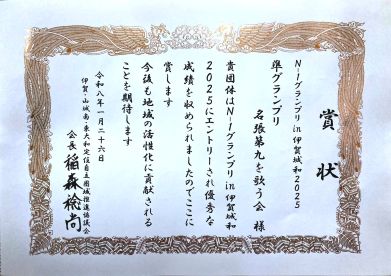 賞状
N-1グランプリin伊賀城和2025
準グランプリ
名張第九を歌う会 様
貴団体はN-1グランプリin伊賀城和
2025にエントリーされ優秀な
成績を収められましたのでここに
賞します
今後も地域の活性化に貢献される
ことを期待します
令和八年一月二十六日
伊賀・山城南・東大和定住自立圏推進協議会
会長 稲森稔尚